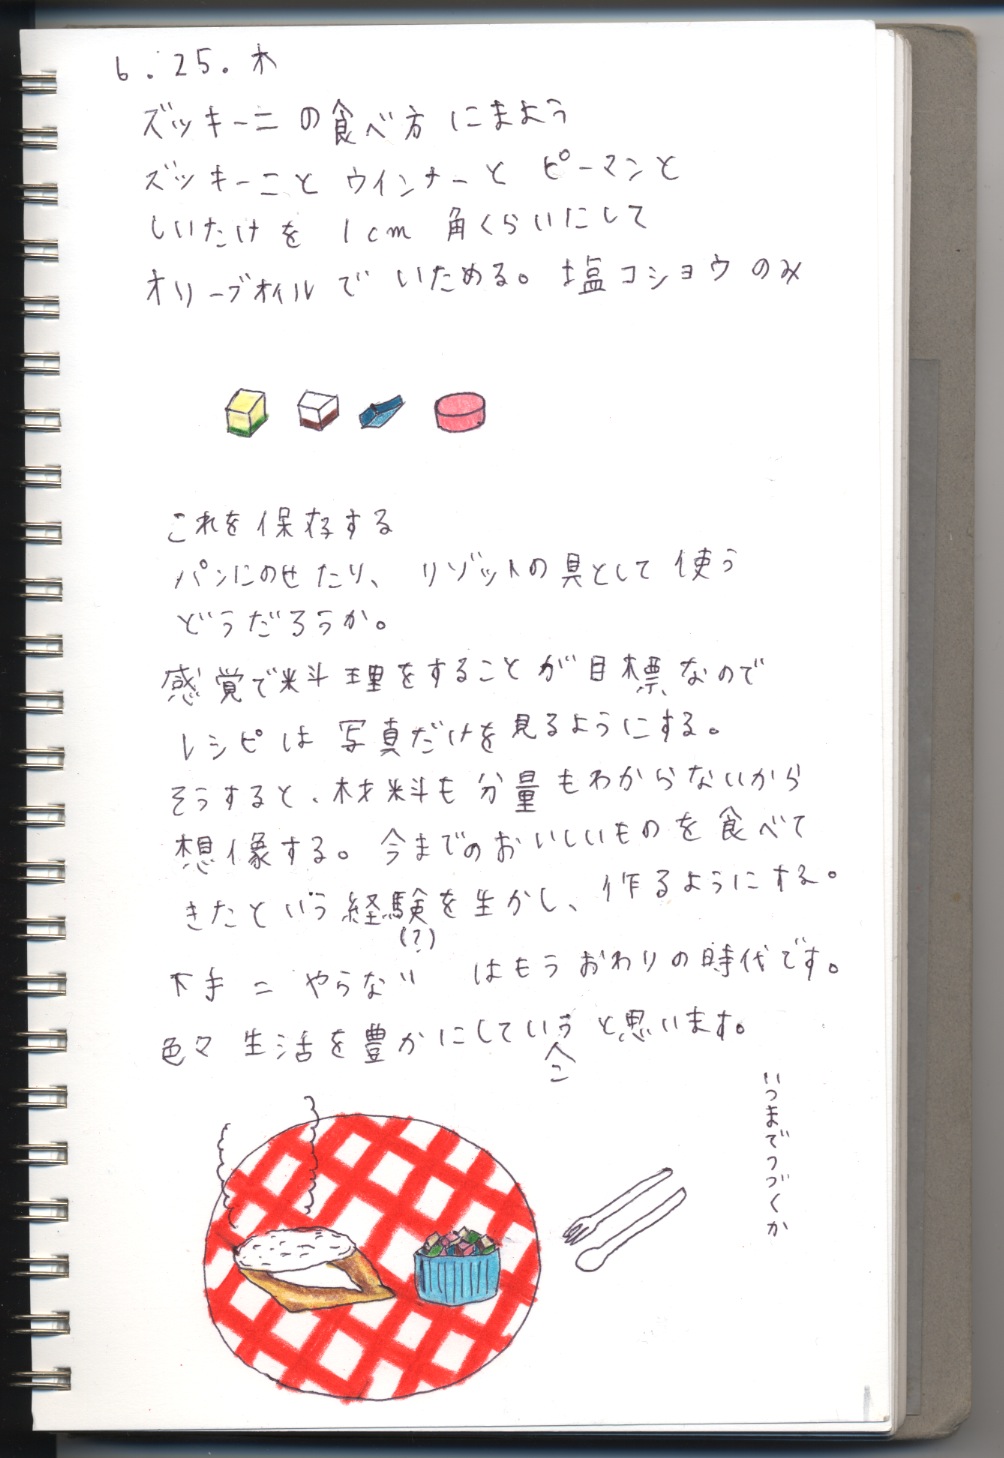 6.25.木
ズッキーニの食べ方にまよう
ズッキーニとウインナーとピーマンと
しいたけを 1cm角くらいにして
オリーブオイルでいためる。塩コショウのみ
これを保存する
パンにのせたり、リゾットの具として使う
どうだろうか。
感覚で料理をすることが目標なので
レシピは写真だけを見るようにする。
そうすると、材料も分量もわからないから
想像する。今までのおいしいものを食べて
きたという経験を生かし、作るようにする。
(?)
下手=やらない はもうおわりの時代です。
色々生活を豊かにしていうと思います。
こ
いつまでつづくか